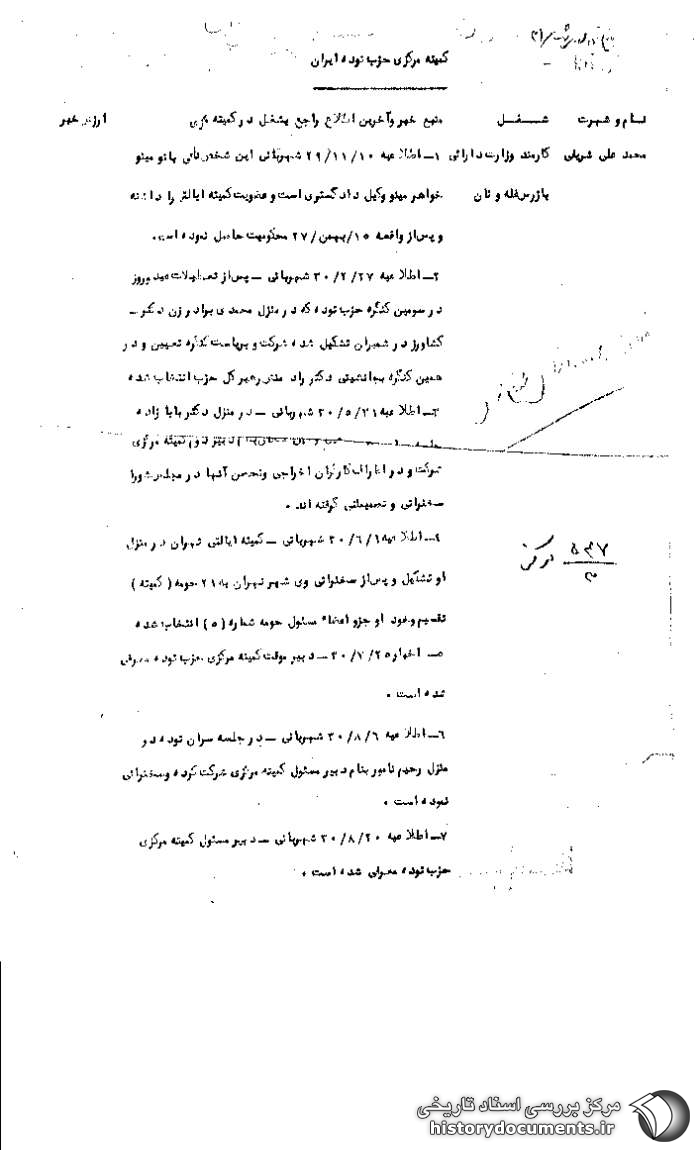 کمیته مرکزی حزب توده ایران
نام و شهرت شغل منبع خبر و آخرین اطلاع راجع بشغل در کمیته مرکزی ارزش خبر
محمد علی شریفی کارمند وزارت دارائی ۱ـ اطلاعیه ۲۹/۱۱/۱۰ شهربانی این شخص با بانو مینو
بازرس غله و نان خواهر مینو وکیل دادگستری است و عضویت کمیته ایالتی را داشته
و پس از واقعه ۱۵/بهمن/۲۷ محکومیت حاصل نموده است.
۲ـ اطلاعیه ۳۰/۲/۲۷ شهربانی ـ پس از تعطیلات عید نوروز
در سومین کنگره حزب توده که در منزل محمدی برادر زن دکتر ـ
کشاورز در شمیران تشکیل شده شرکت و بریاست کنگره تعیین و در
همین کنگره بجانشینی دکتر رادمنش رهبر کل حزب انتخاب شده
۳ـ اطلاعیه ۳۰/۵/۲۱ شهربانی ـ در منزل دکتر بابا زاده
دبیر دوم کمیته مرکزی
شرکت و در اطراف کارگران اخراجی و تحصن آنها در مجلس شورا
سخنرانی و تصمیماتی گرفته اند.
۴ـ اطلاعیه ۳۰/۶/۱ شهربانی ـ کمیته ایالتی تهران در منزل
او تشکیل و پس از سخنرانی وی شهر تهران به ۲۱ حومه (کمیته)
تقسیم و خود او جزو اعضاء مسئول حومه شماره (۵) انتخاب شده
۵ـ اخبار ۳۰/۷/۲۵ ـ دبیر موقت کمیته مرکزی حزب توده معرفی
شده است.
۶ـ اطلاعیه ۳۰/۸/۶ شهربانی ـ در جلسه سران توده در
منزل رحیم نامور بنام دبیر مسئول کمیته مرکزی شرکت کرده و سخنرانی
نموده است.
۷ـ اطلاعیه ۳۰/۸/۲۰ شهربانی ـ دبیر مسئول کمیته مرکزی
حزب توده معرفی شده است.
مرکز بررسی اسناد تاریخی
historydocuments.ir